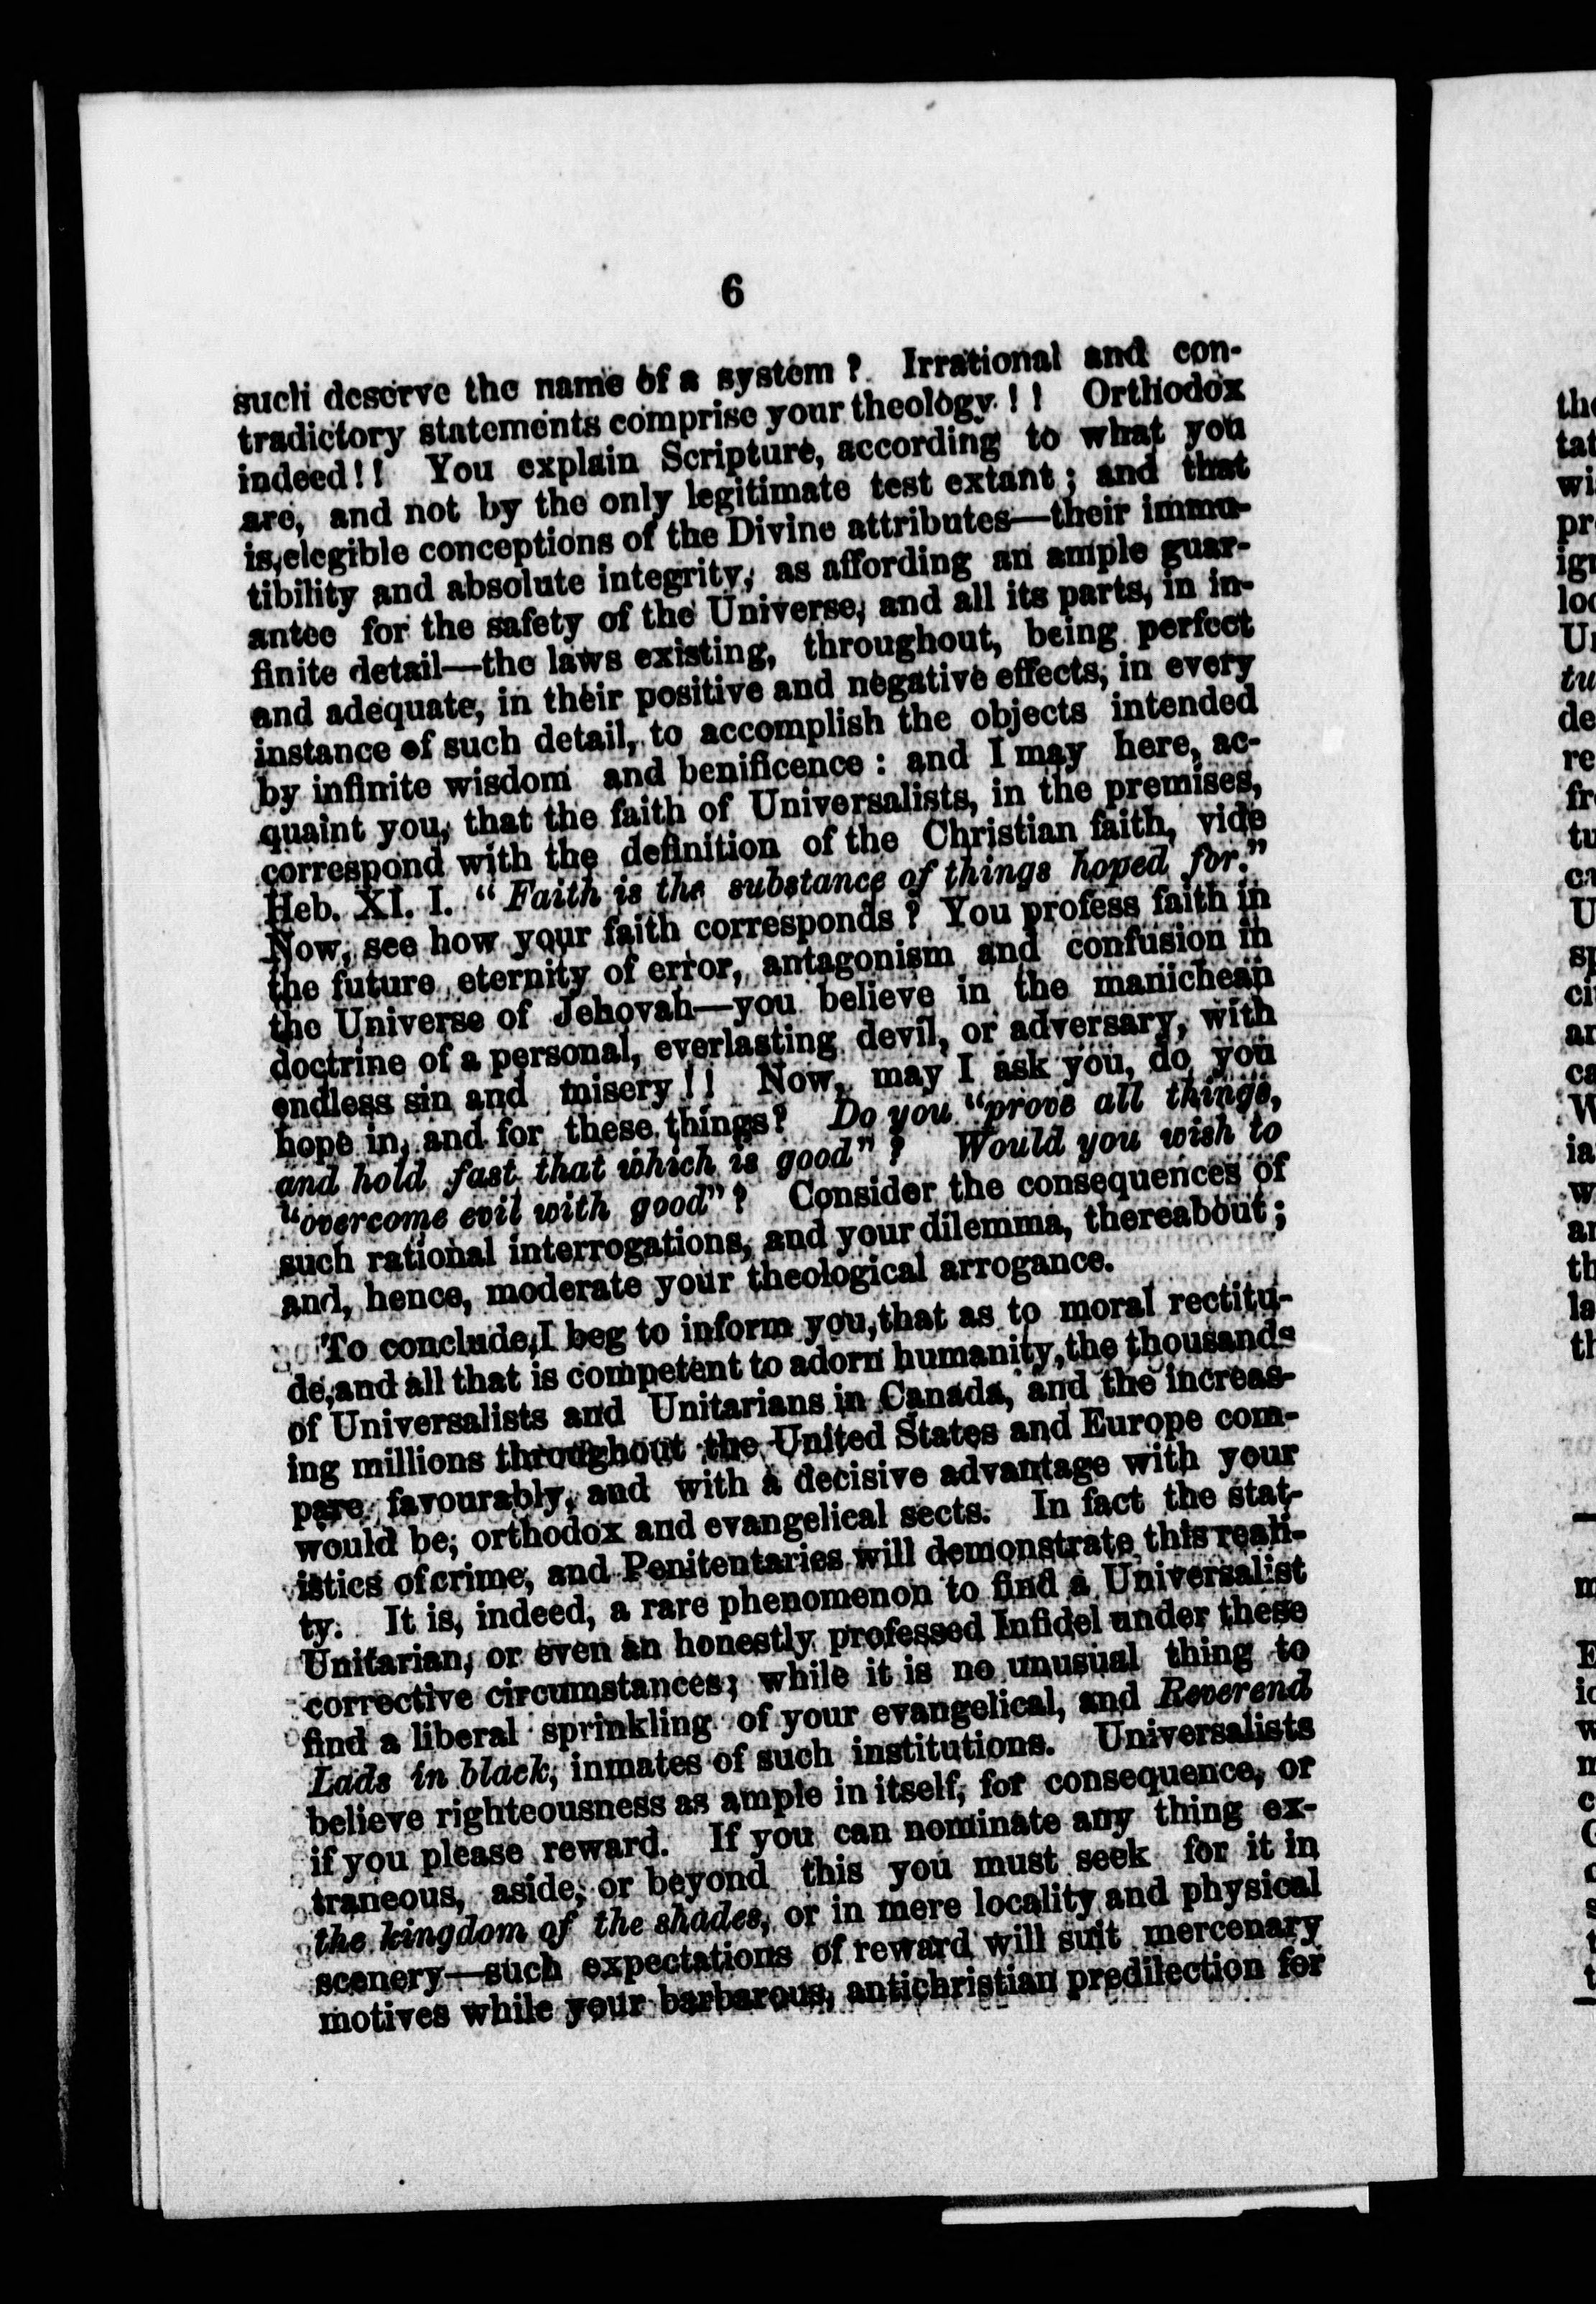 6
such deserve the name of a system ? Irrational and con-
tradictory statements comprise your theology ! ! Orthodox
indeed ! ! You explain Scripture, according to what you
are, and not by the only legitimate test extant ; and that
is, elegible conceptions of the Divine attributes—their immu-
tibility and absolute integrity, as affording an ample guar-
antee for the safety of the Universe, and all its parts, in in-
finite detail—the laws existing, throughout, being perfect
and adequate, in their positive and negative effects, in every
instance of such detail, to accomplish the objects intended
by infinite wisdom and benificence : and I may here, ac-
quaint you, that the faith of Universalists, in the premises,
correspond with the definition of the Christian faith, vide
Heb. XI. I. “Faith is the substance of things hoped for.”
Now, see how your faith corresponds ? You profess faith in
the future eternity of error, antagonism and confusion in
the Universe of Jehovah—you believe in the manichean
doctrine of a personal, everlasting devil, or adversary, with
endless sin and misery ! ! Now, may I ask you, do you
hope in, and for these things? Do you “prove all things,
and hold fast that which is good” ? Would you wish to
“overcome evil with good” ? Consider the consequences of
such rational interrogations, and your dilemma, thereabout ;
and, hence, moderate your theological arrogance.
To conclude, I beg to inform you, that as to moral rectitu-
de, and all that is competent to adorn humanity, the thousands
of Universalists and Unitarians in Canada, and the increas-
ing millions throughout the United States and Europe com-
pare favourably, and with a decisive advantage with your
would be; orthodox and evangelical sects. In fact the stat-
istics of crime, and Penitentaries will demonstrate this reali-
ty. It is, indeed, a rare phenomenon to find a Universalist
Unitarian, or even an honestly professed Infidel under these
corrective circumstances; while it is no unusual thing to
find a liberal sprinkling of your evangelical, and Reverend
Lads in black, inmates of such institutions. Universalists
believe righteousness as ample in itself, for consequence, or
if you please reward. If you can nominate any thing ex-
traneous, aside, or beyond this you must seek for it in
the kingdom of the shades, or in mere locality and physical
scenery—such expectations of reward will suit mercenary
motives while your barbarous, antichristian predilection for